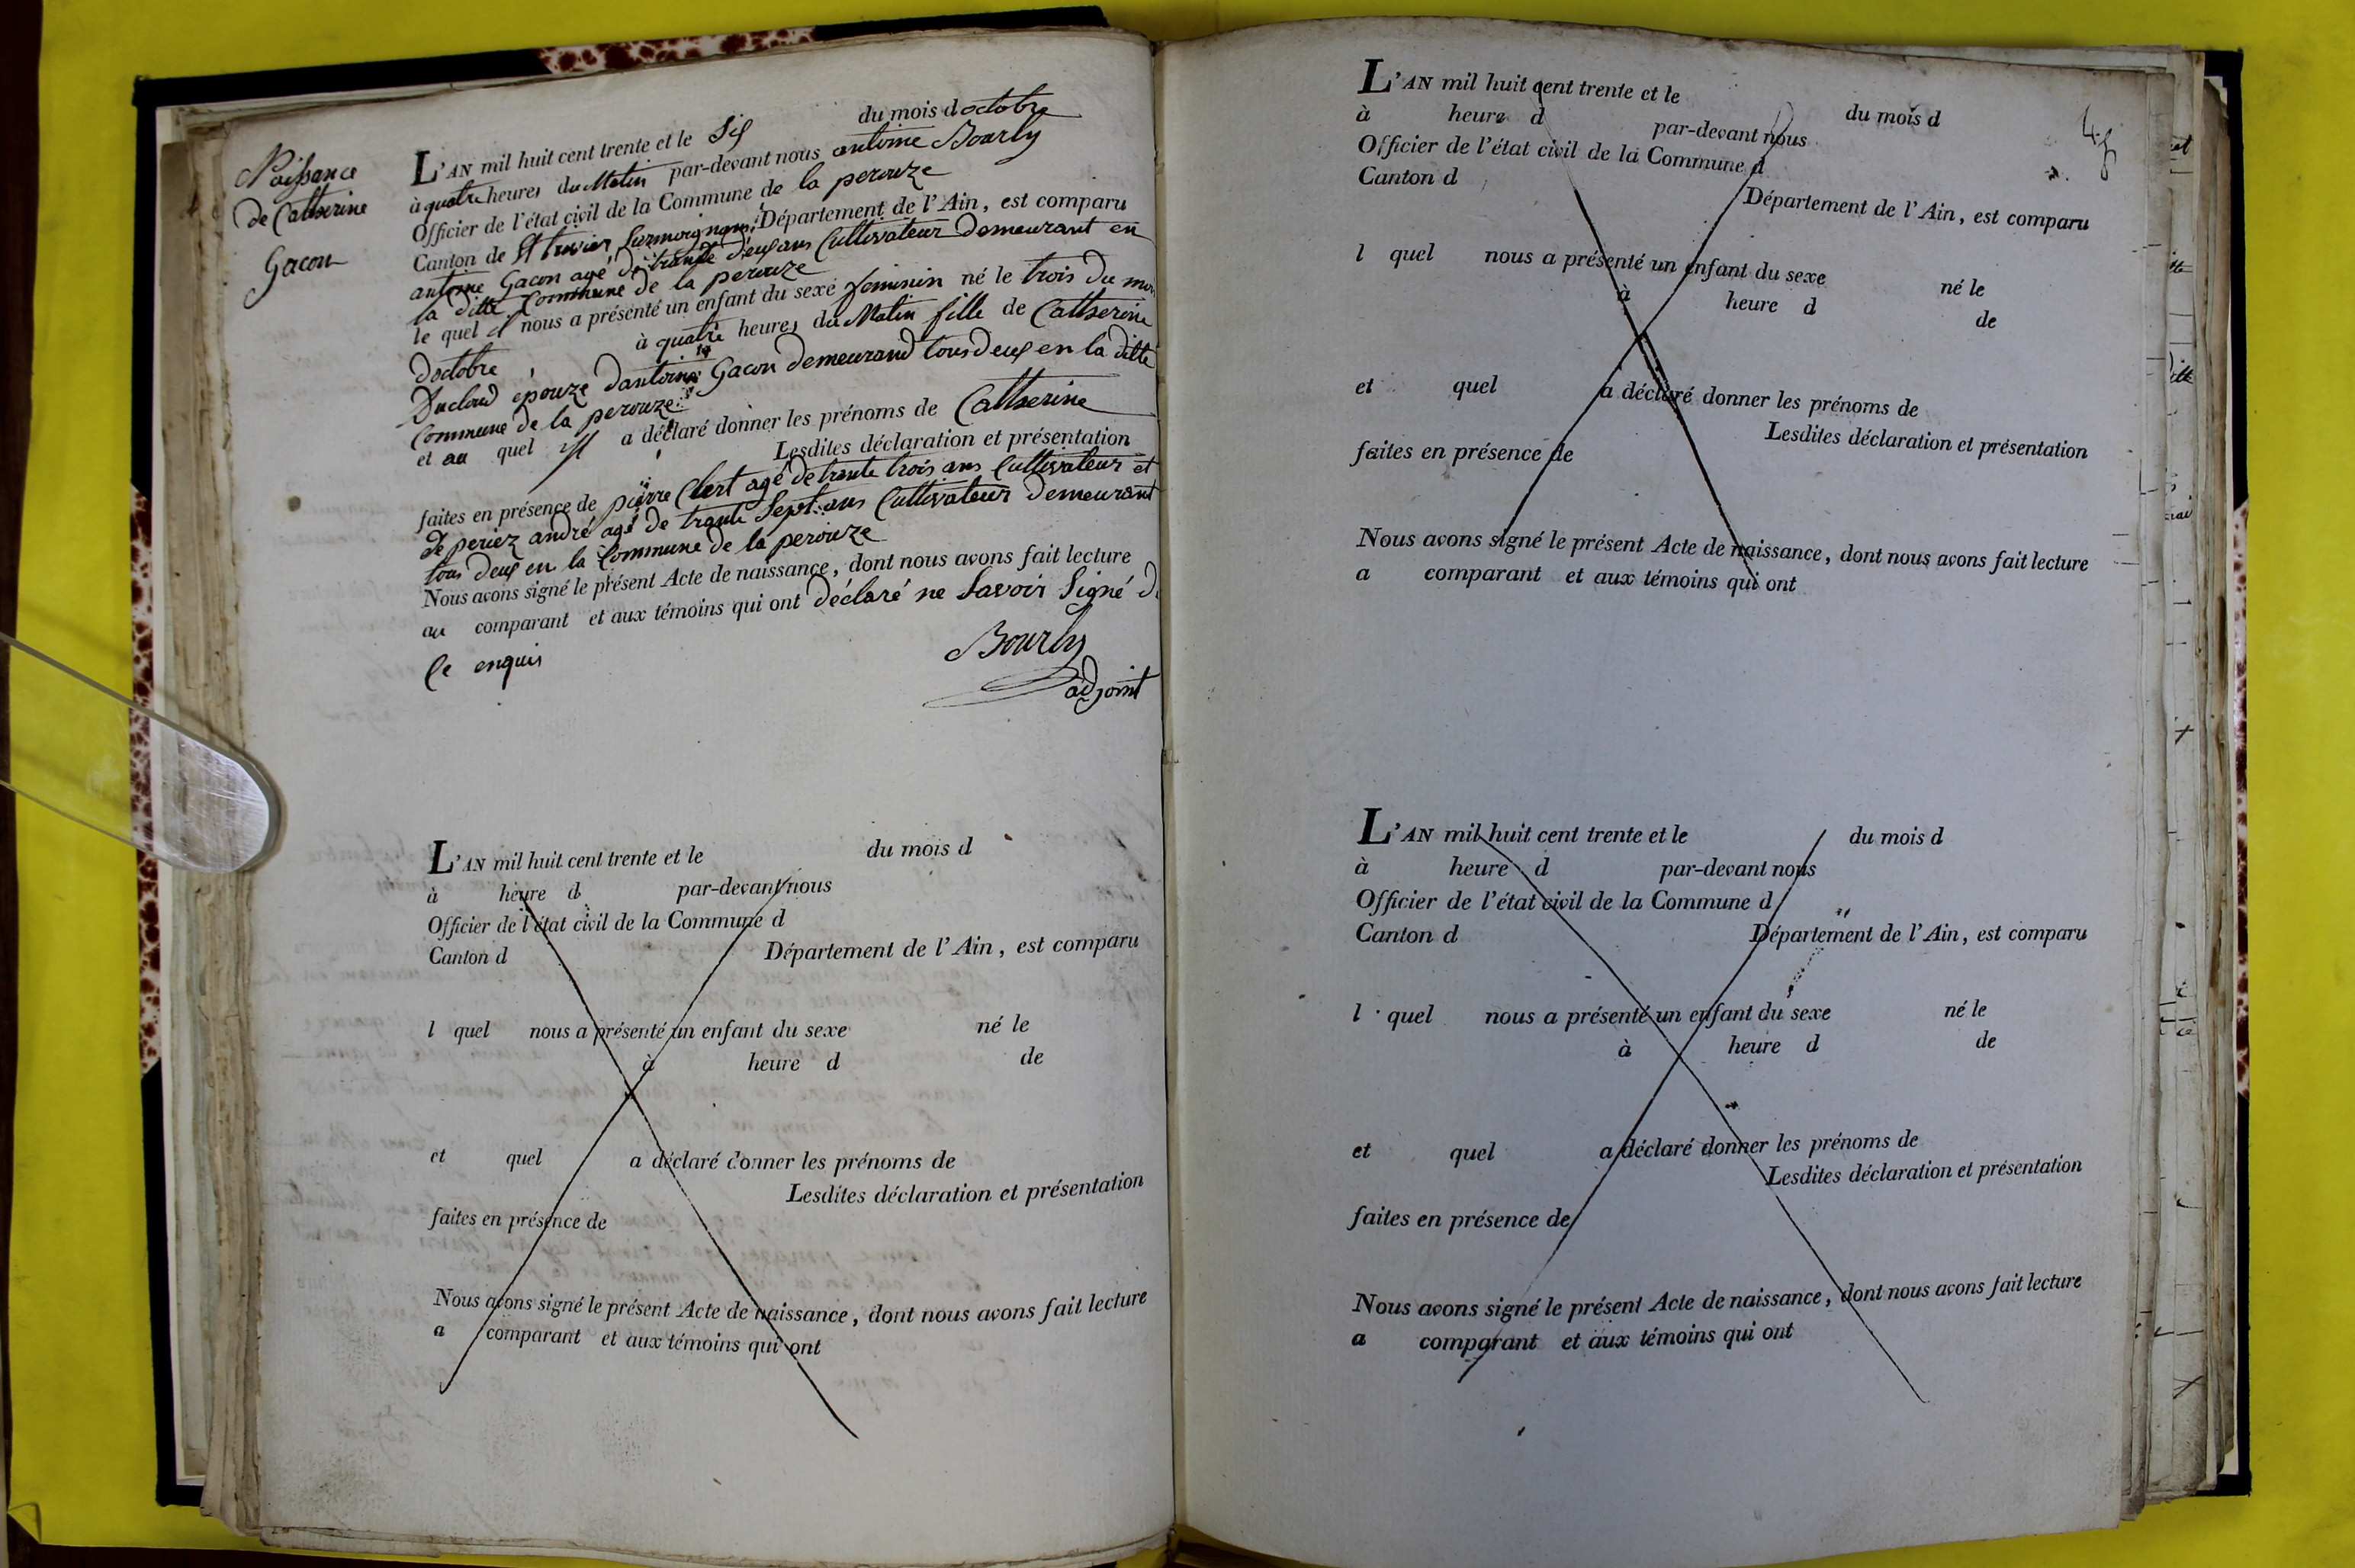 Naissance
de Catherine
Gacon
L'AN mil huit cent trente et le Six du mois doctobre
à quatre heures du Matin par-devant nous antoine Bourly
Officier de l'état civil de la Commune de la perouze
Canton de St trivier Département de l'Ain, est comparu
antoine Gacon agé de trante deux ans Cultivateur Demeurant en
la ditte Commune de la perouze
le quel il nous a présenté un enfant du sexe feminin né le trois du
doctobre à quatre heures du Matin fille de Catherine
Ducloud epouze dantoine Gacon demeurand tous deux en la ditte
Commune de la perouze
et au quel il a déclaré donner les prénoms de Catherine
Lesdites déclaration et présentation
faites en présence de pierre Clert agé de trante trois ans Cultivateur et
de periez andré agé de trante Sept ans Cultivateur demeurant
tous deux en la Commune de la perouze
Nous avons signé le présent Acte de naissance, dont nous avons fait lecture
au comparant et aux témoins qui ont déclaré ne Savoir Signé de
Ce enquis
Bourly
adjoint
L'AN mil huit cent trente et le du mois d
à heure d par-devant nous
Officier de l'état civil de la Commune d
Canton d Département de l'Ain, est comparu
l quel nous a présenté un enfant du sexe né le
à heure d de
et quel a déclaré donner les prénoms de
Lesdites déclaration et présentation
faites en présence de
Nous avons signé le présent Acte de naissance, dont nous avons fait lecture
a comparant et aux témoins qui ont
L'AN mil huit cent trente et le du mois d
à heure d par-devant nous
Officier de l'état civil de la Commune d
Canton d Département de l'Ain, est comparu
l quel nous a présenté un enfant du sexe né le
à heure d de
et quel a déclaré donner les prénoms de
Lesdites déclaration et présentation
faites en présence de
Nous avons signé le présent Acte de naissance, dont nous avons fait lecture
a comparant et aux témoins qui ont
L'AN mil huit cent trente et le du mois d
à heure d par-devant nous
Officier de l'état civil de la Commune d
Canton d Département de l'Ain, est comparu
l quel nous a présenté un enfant du sexe né le
à heure d de
et quel a déclaré donner les prénoms de
Lesdites déclaration et présentation
faites en présence de
Nous avons signé le présent Acte de naissance, dont nous avons fait lecture
a comparant et aux témoins qui ont